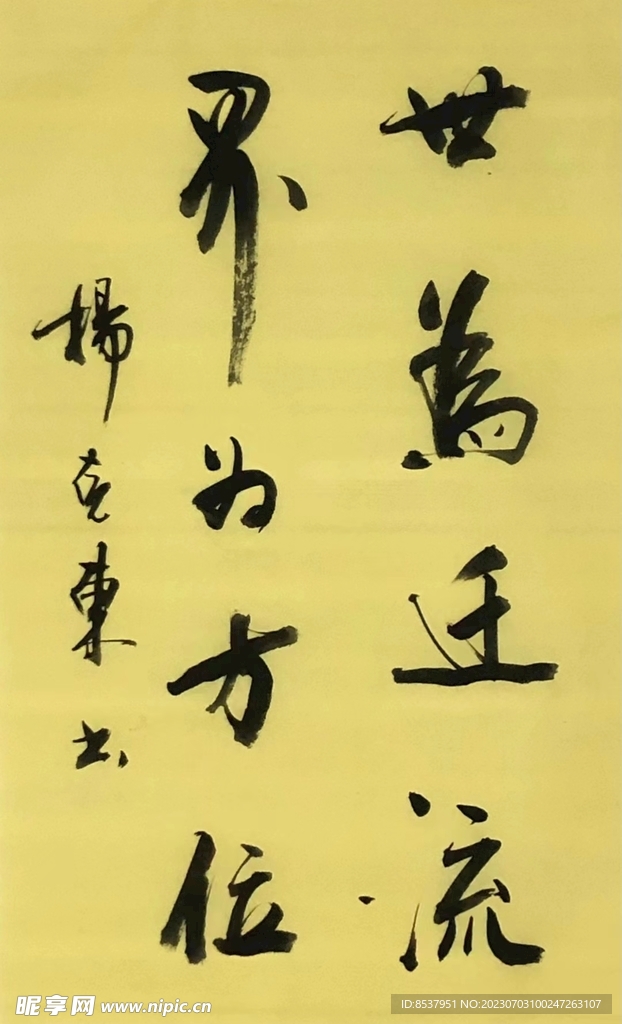 世為迁流
界为方位
楊克東书
昵享网 www.nipic.cn
ID:8537951 NO:20230703100247263107